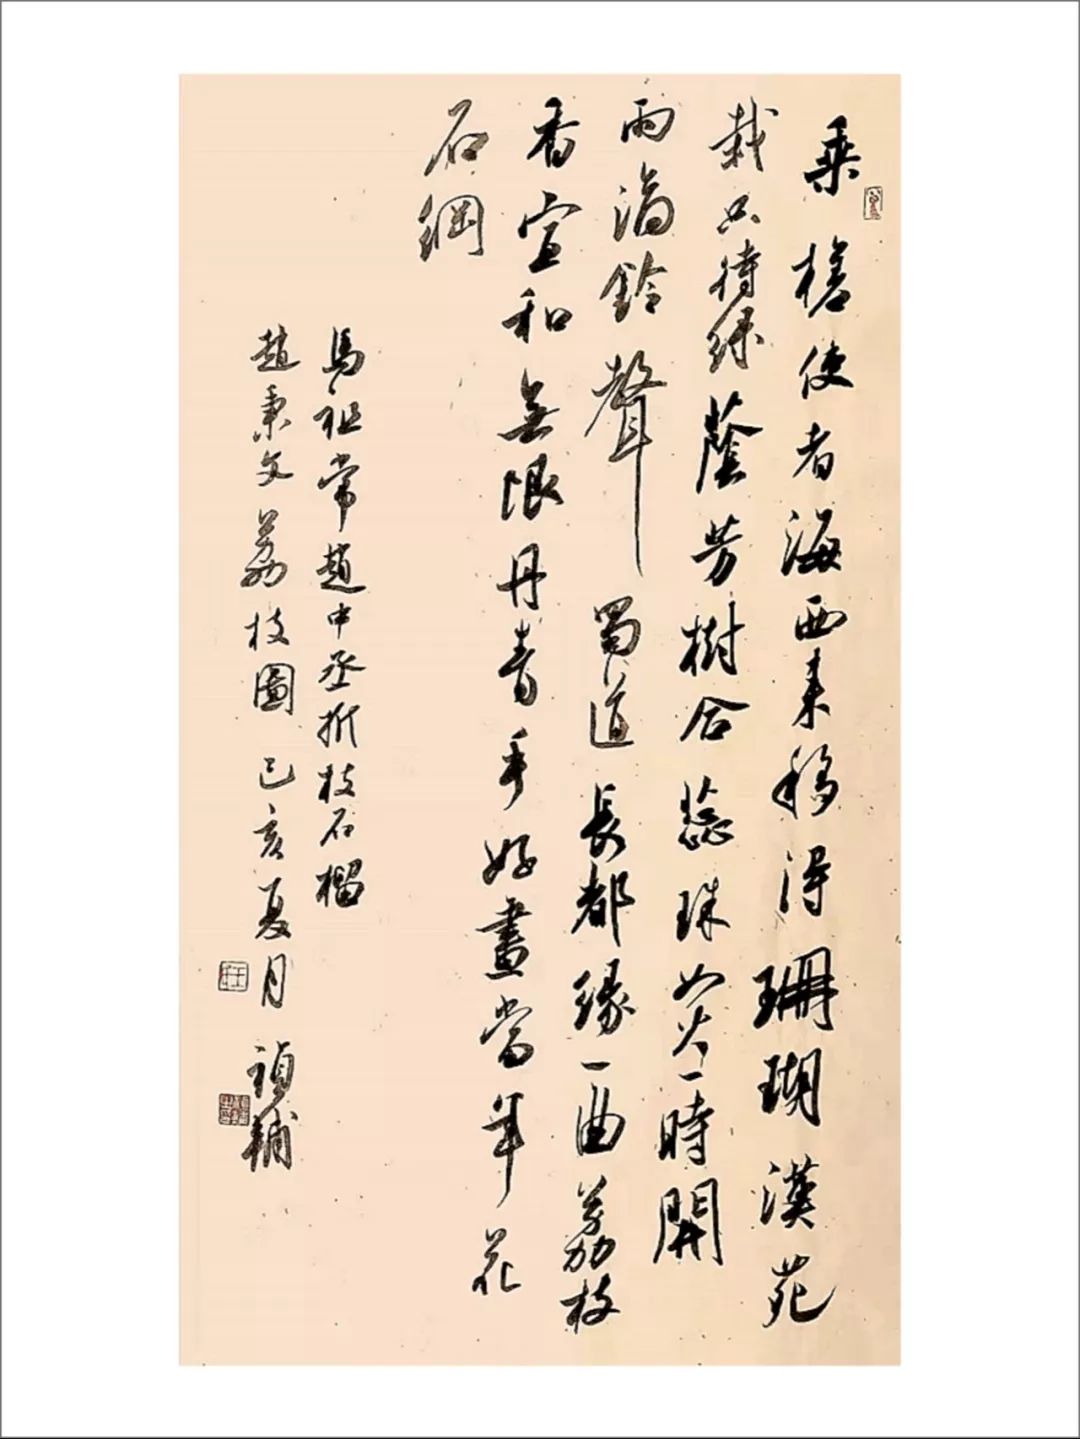 乘槎使者海西来移得珊瑚漢苑
栽只待绿蔭芳樹合蕊珠如火一時開
雨滴鈴聲蜀道長都缘一曲荔枝
香宣和無限丹青手好畫當年花
石綱
馬祖常趙中丞折枝石榴
趙秉文荔枝圖己亥夏月禎輔